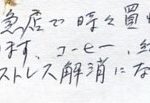 急店で時々買
ます、コーヒー、紅
ストレス解消にな